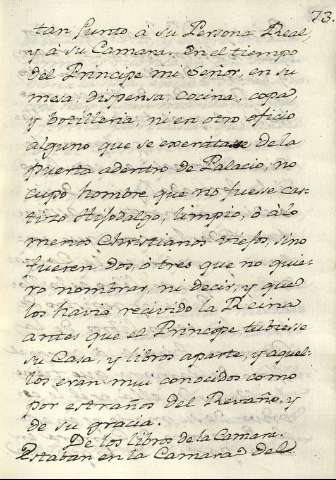 73.
tan junto à su Persona Real,
y à su Camara. En el tiempo
del Principe mi Señor, en su
mesa, dispensa, cocina, copa
y botilleria, ni en otro oficio
alguno que se exercitase de la
puerta adentro de Palacio, no
cupo hombre que no fuese cas-
tizo Hijodalgo, limpio, ò à lo
menos Christianos viejos, sino
fueren dos, ò tres que no quie-
ro nombrar, ni decir, y que
los havia recivido la Reina
antes que el Principe tubiese
su Casa, y libros aparte, y aquel-
los eran mui conocidos como
por estraños del Revaño, y
de su gracia.
De los libros de la Camara.
Estaban en la Camara del